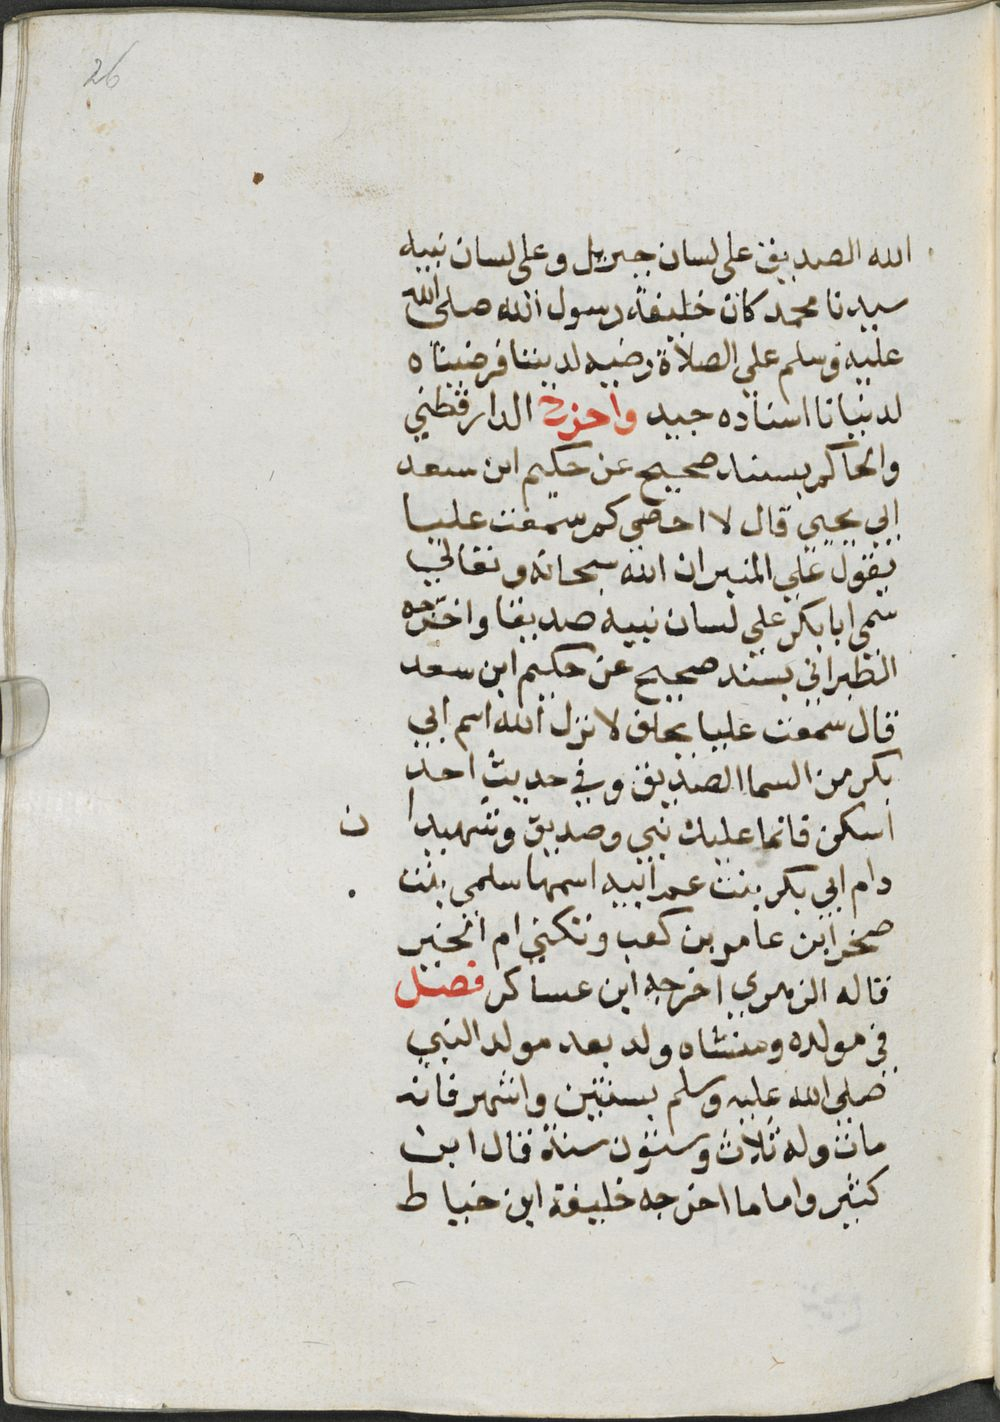 26
الله الصديق على لسان جبريل وعلى لسان نبيه
سيدنا محمد كان خليفة رسول الله صلى الله
عليه وسلم علي الصلاة رضيه لديننا فرضيناه
لدنيانا اسناده جيد واخرج الدارقطني
والحاكم بسند صحيح عن حكيم ابن سعد
ابي يحيي قال لا احصي كم سمعت عليا
يقول علي المنبر ان الله سبحانه وتعالي
سمي ابا بكر علي لسان نبيه صديقا واخرجه
الطبراني بسند صحيح عن حكيم ابن سعد
قال سمعت عليا يحلف لا نزل الله اسم ابي
بكر من السما الصديق وفي حديث احد
اسكن فانما عليك نبي وصديق وشهيدا ن
وام ابي بكر بنت عم ابيه اسمها سلمى بنت
صخر ابن عامر بن كعب وتكني ام الخير
قاله الزهري اخرجه ابن عساكر فصل
في مولده ومنشاه ولد بعد مولد النبي
صلى الله عليه وسلم بسنتين واشهر فانه
مات وله ثلاث وستون سنة قال ابن
كثير واما ما اخرجه خليفة ابن خياط